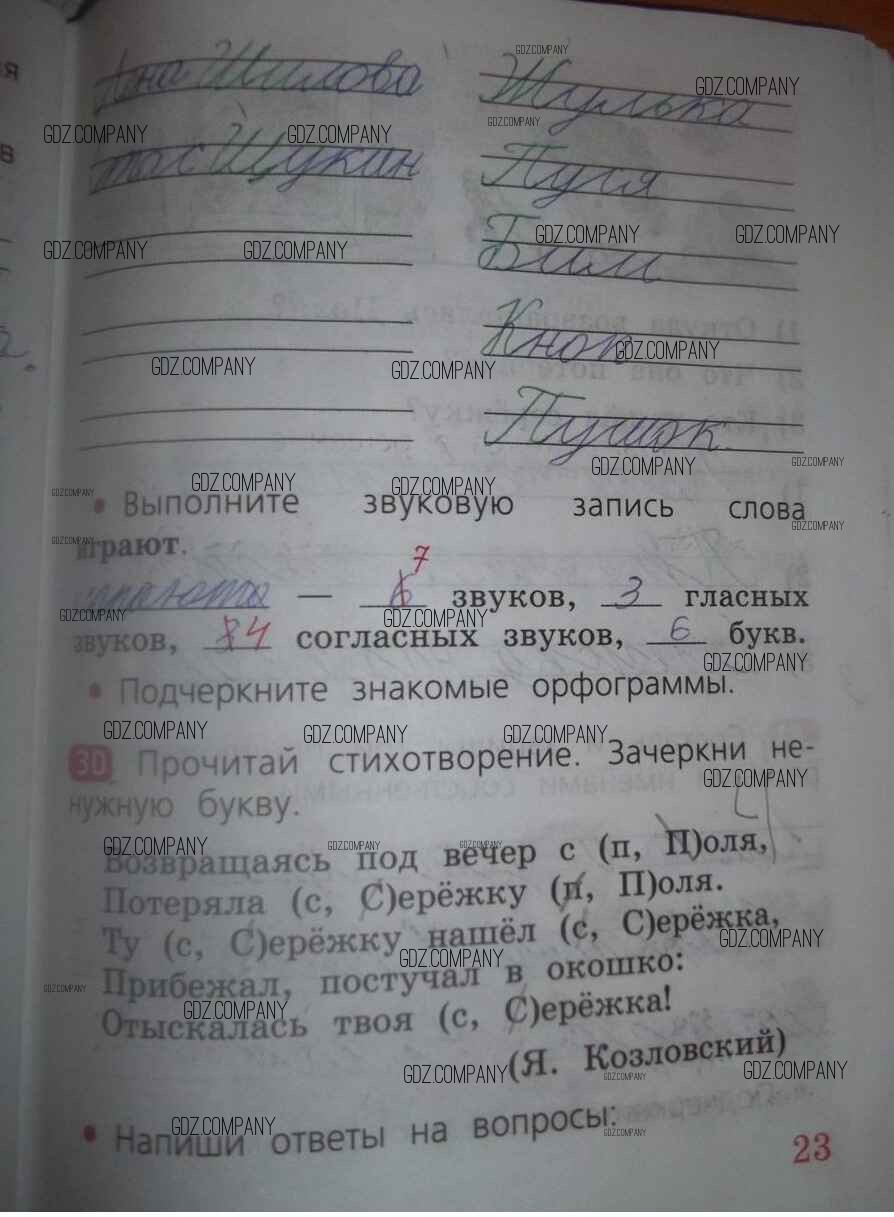 Шилова Жулька
Щукин Пуля
Бим
Кноп
Пушок
• Выполните звуковую запись слова
играют.
7
— 6 звуков, 3 гласных
звуков, 4 согласных звуков, 6 букв.
• Подчеркните знакомые орфограммы.
30 Прочитай стихотворение. Зачеркни не-
нужную букву.
Возвращаясь под вечер с (п, П)оля,
Потеряла (с, С)ерёжку (п, П)оля.
Ту (с, С)ерёжку нашёл (с, С)ерёжка,
Прибежал, постучал в окошко:
Отыскалась твоя (с, С)ерёжка!
(Я. Козловский)
• Напиши ответы на вопросы:
23
GDZ.COMPANY